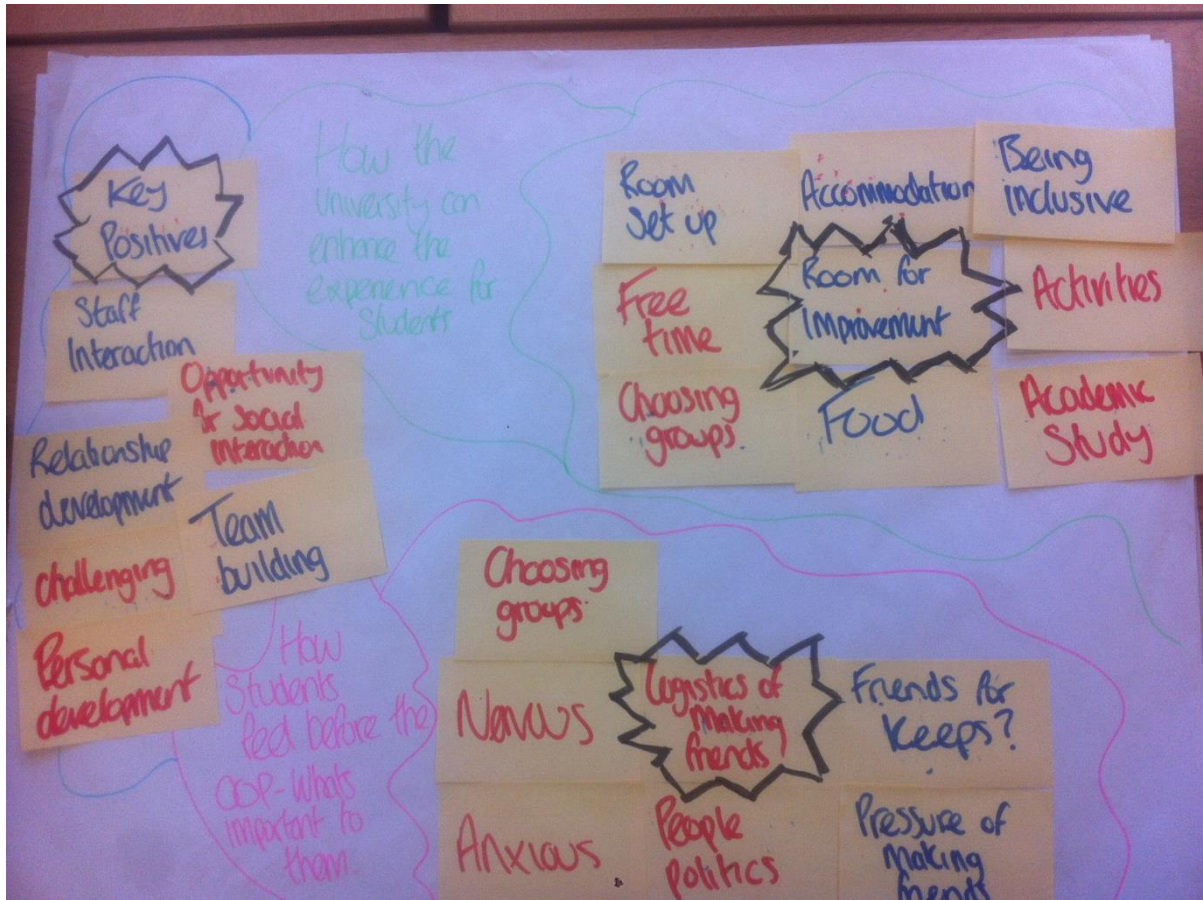 Key
Positives
Staff
Interaction
Opportunity
for social
interaction
Relationship
development
Team
building
challenging
Personal
development
How the
University can
enhance the
experience for
Students
Room
Set up
Accommodation
Being
inclusive
Free
time
Room for
Improvement
Activities
Choosing
groups
Food
Academic
Study
How
Students
feel before the
OOP-Whats
important to
them.
Choosing
groups
Nervous
Logistics of
making
friends
Friends for
Keeps?
Anxious
People
politics
Pressure of
making
friends